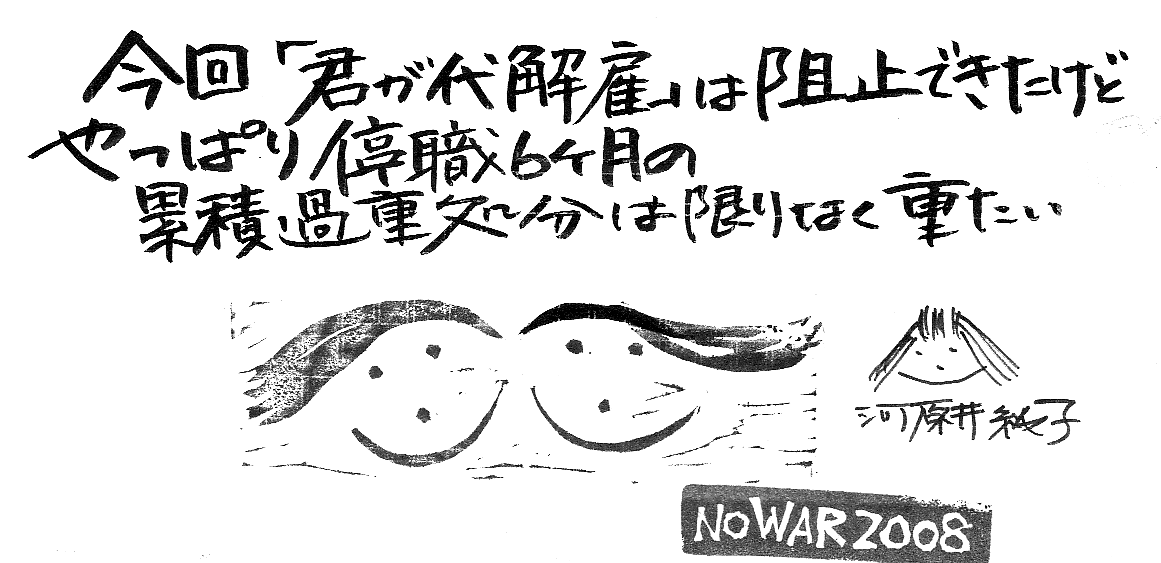 今回「君が代解雇」は阻止できたけど
やっぱり停職6ケ月の
累積過重処分は限りなく重たい
河原井純子
NO WAR 2008